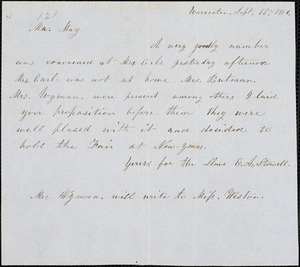 Worcester, Sept. 16th
12
Mr. May
A very goodly number
was convened at Mrs. Earle's yesterday afternoon
Mrs. Earle was not at home Mrs.
Mrs. Wyman, were present among others I laid
your proposition before them they were
well plased with it and decided to
hold the Fair at New-Years.
Yours for the Slave E. A. Stowell.
Mrs Wyman, will write to Miss. Weston.